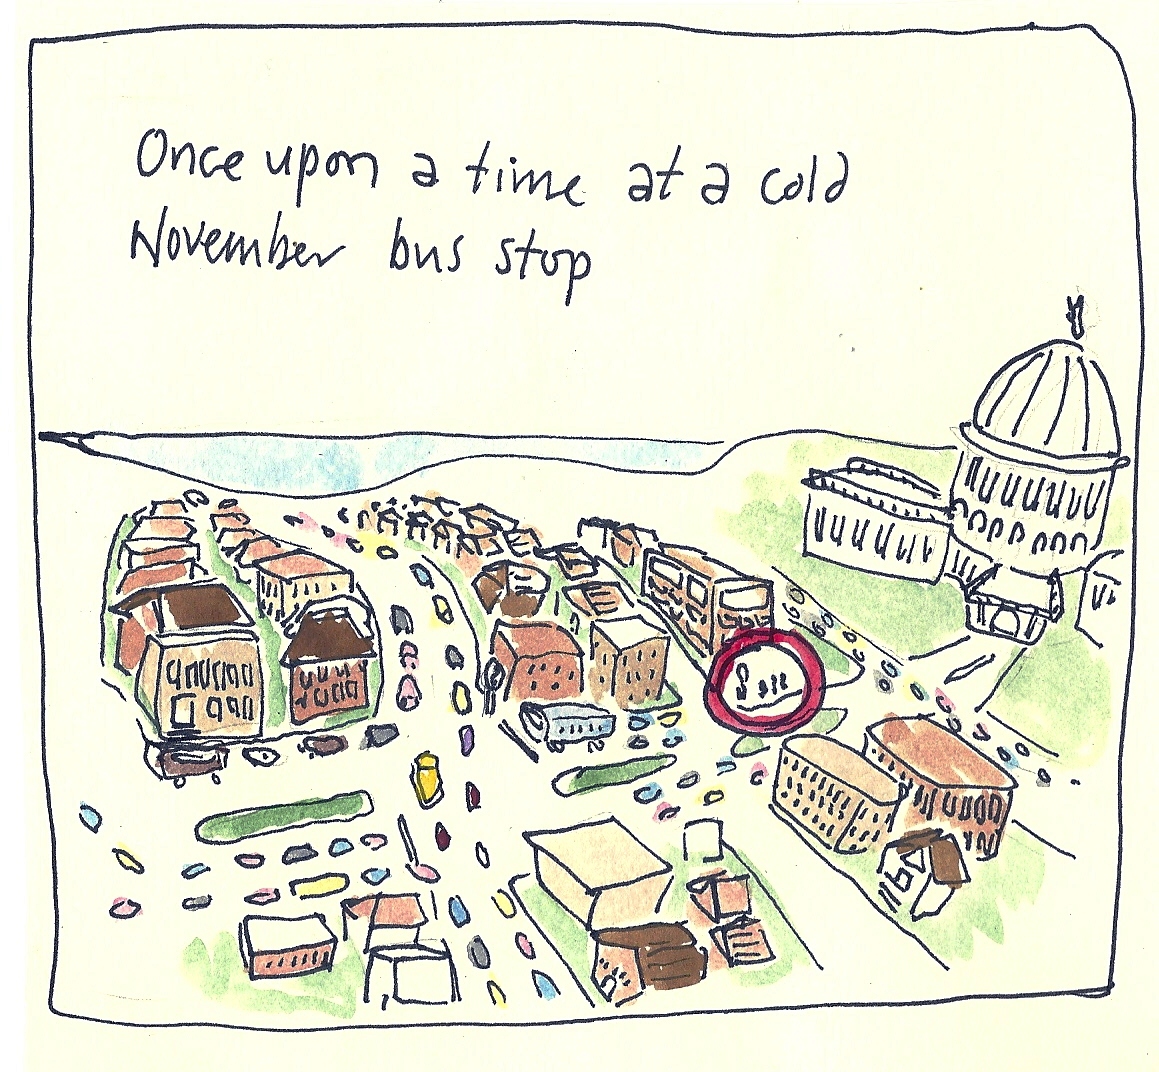 Once upon a time at a cold
November bus stop